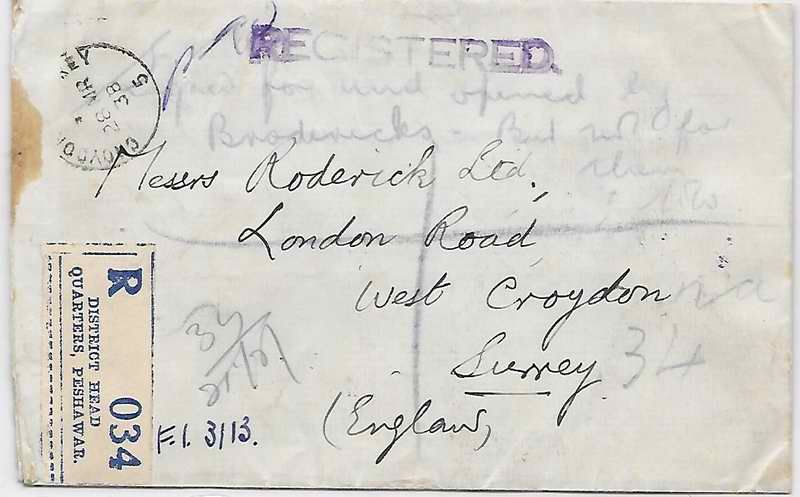 REGISTERED.
CROYDON
28 MR
38
5
signed for and opened by
Brodericks - But not for
them
Messrs Roderick Ltd.,
London Road
West Croydon
Surrey
34
(England)
R 034
DISTRICT HEAD
QUARTERS, PESHAWAR.
F.I. 3/13.